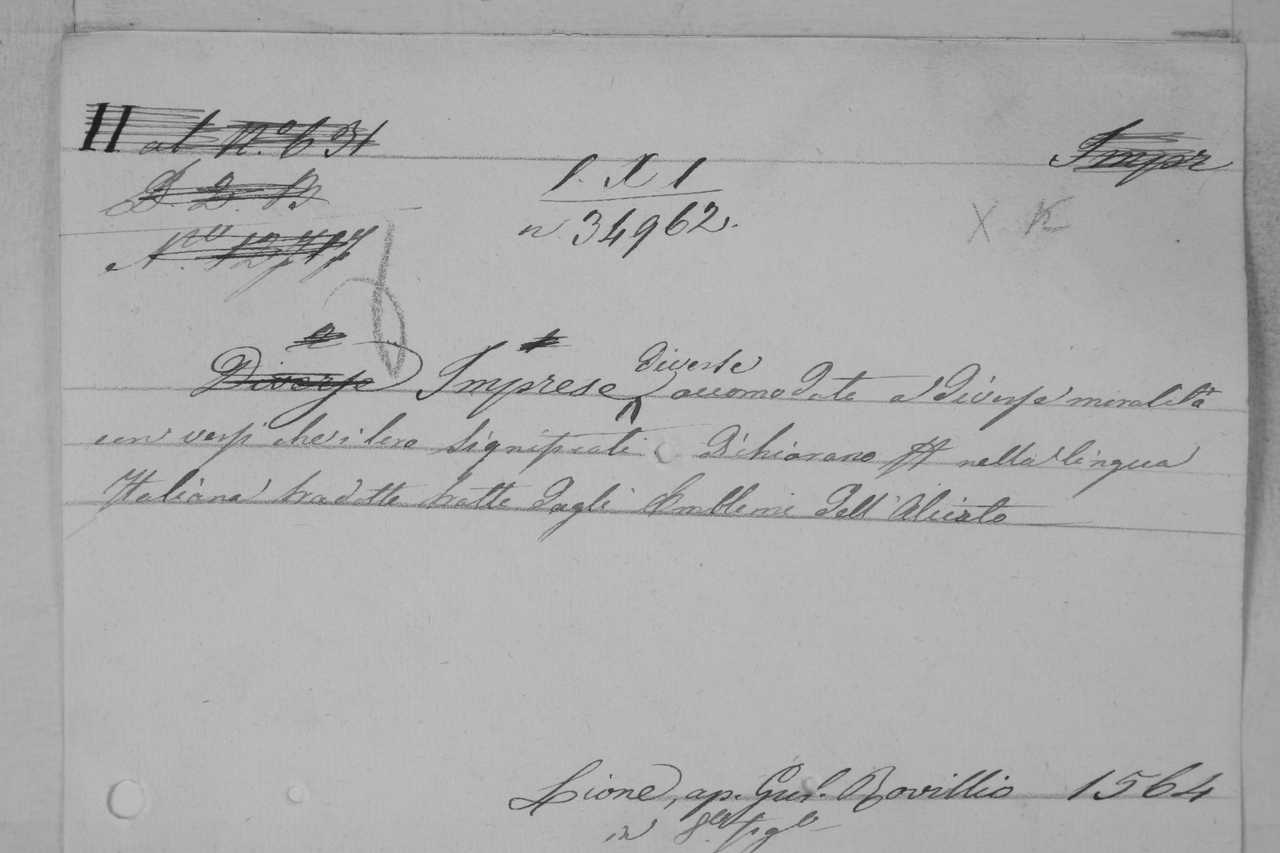 II al N.º 6 31
Impr
D. 2. B
l. X 1
N.ro
n 34962.
X K
Diverse Imprese diverse accomodate a diverse moralità
con versi che i loro significati dichiarano nella lingua
Italiana tradotte tratte dagli Emblemi dell'Alciato
Lione, ap. Gul. Rovillio 1564
in 8.º fig.º